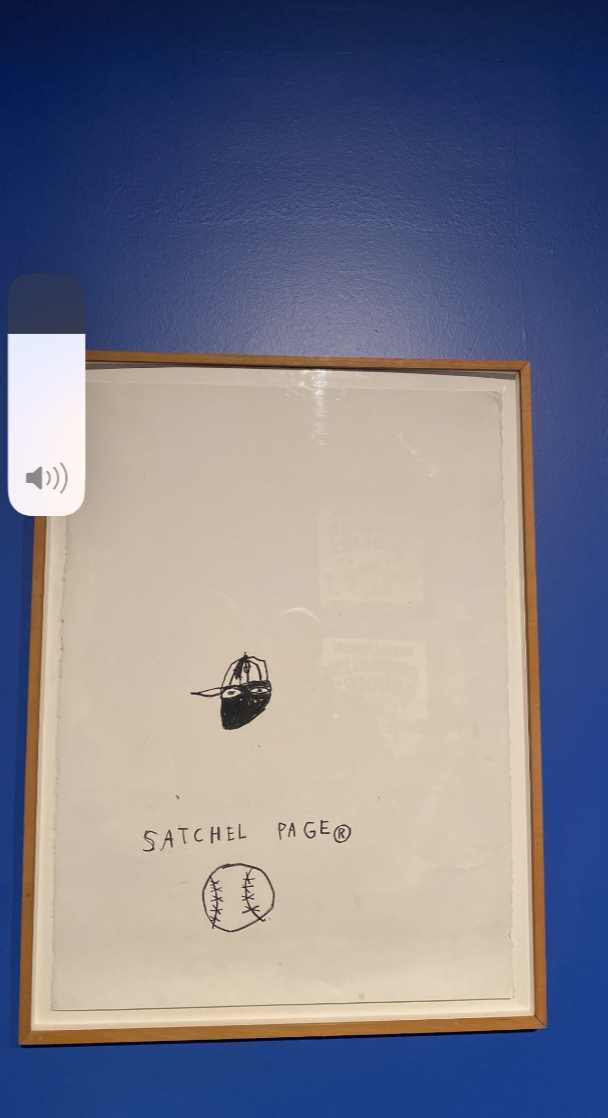 SATCHEL PAGE®